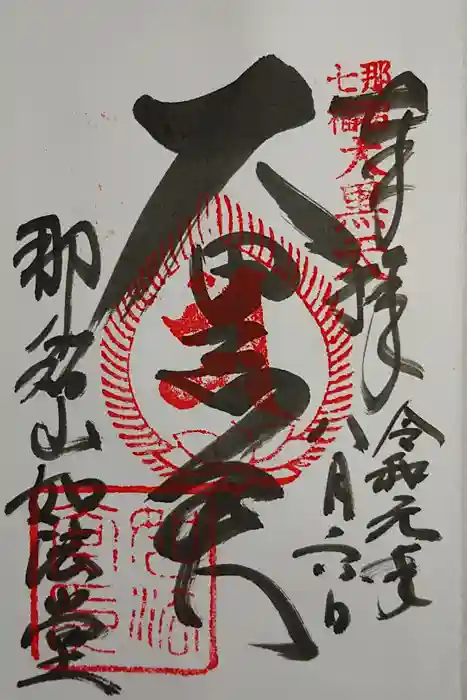 奉拝
那須
七福
大黒天
令和元年
八月六日
大黒天
如法堂